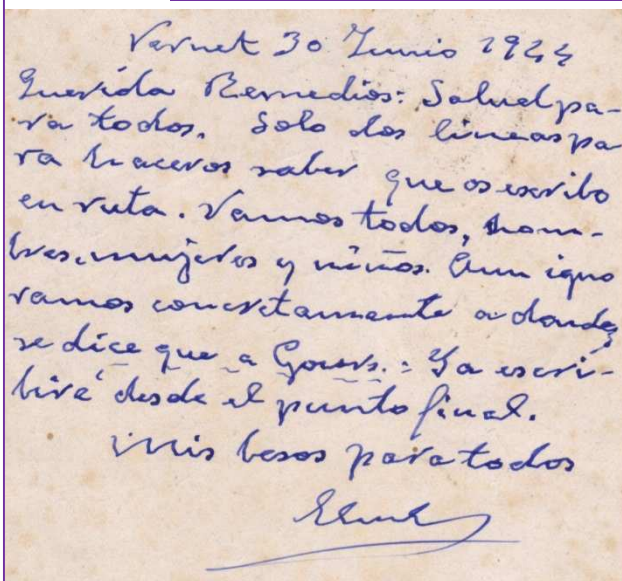 Vernet 30 Junio 1944
Querida Remedios: Salud pa-
ra todos. Solo dos lineas pa
ra haceros saber que os escribo
en ruta. Vamos todos, hom-
bres, mujeres y niños. Aun igno
ramos concretamente a donde,
se dice que a Gours. : Ya escri-
biré desde el punto final.
Mis besos para todos